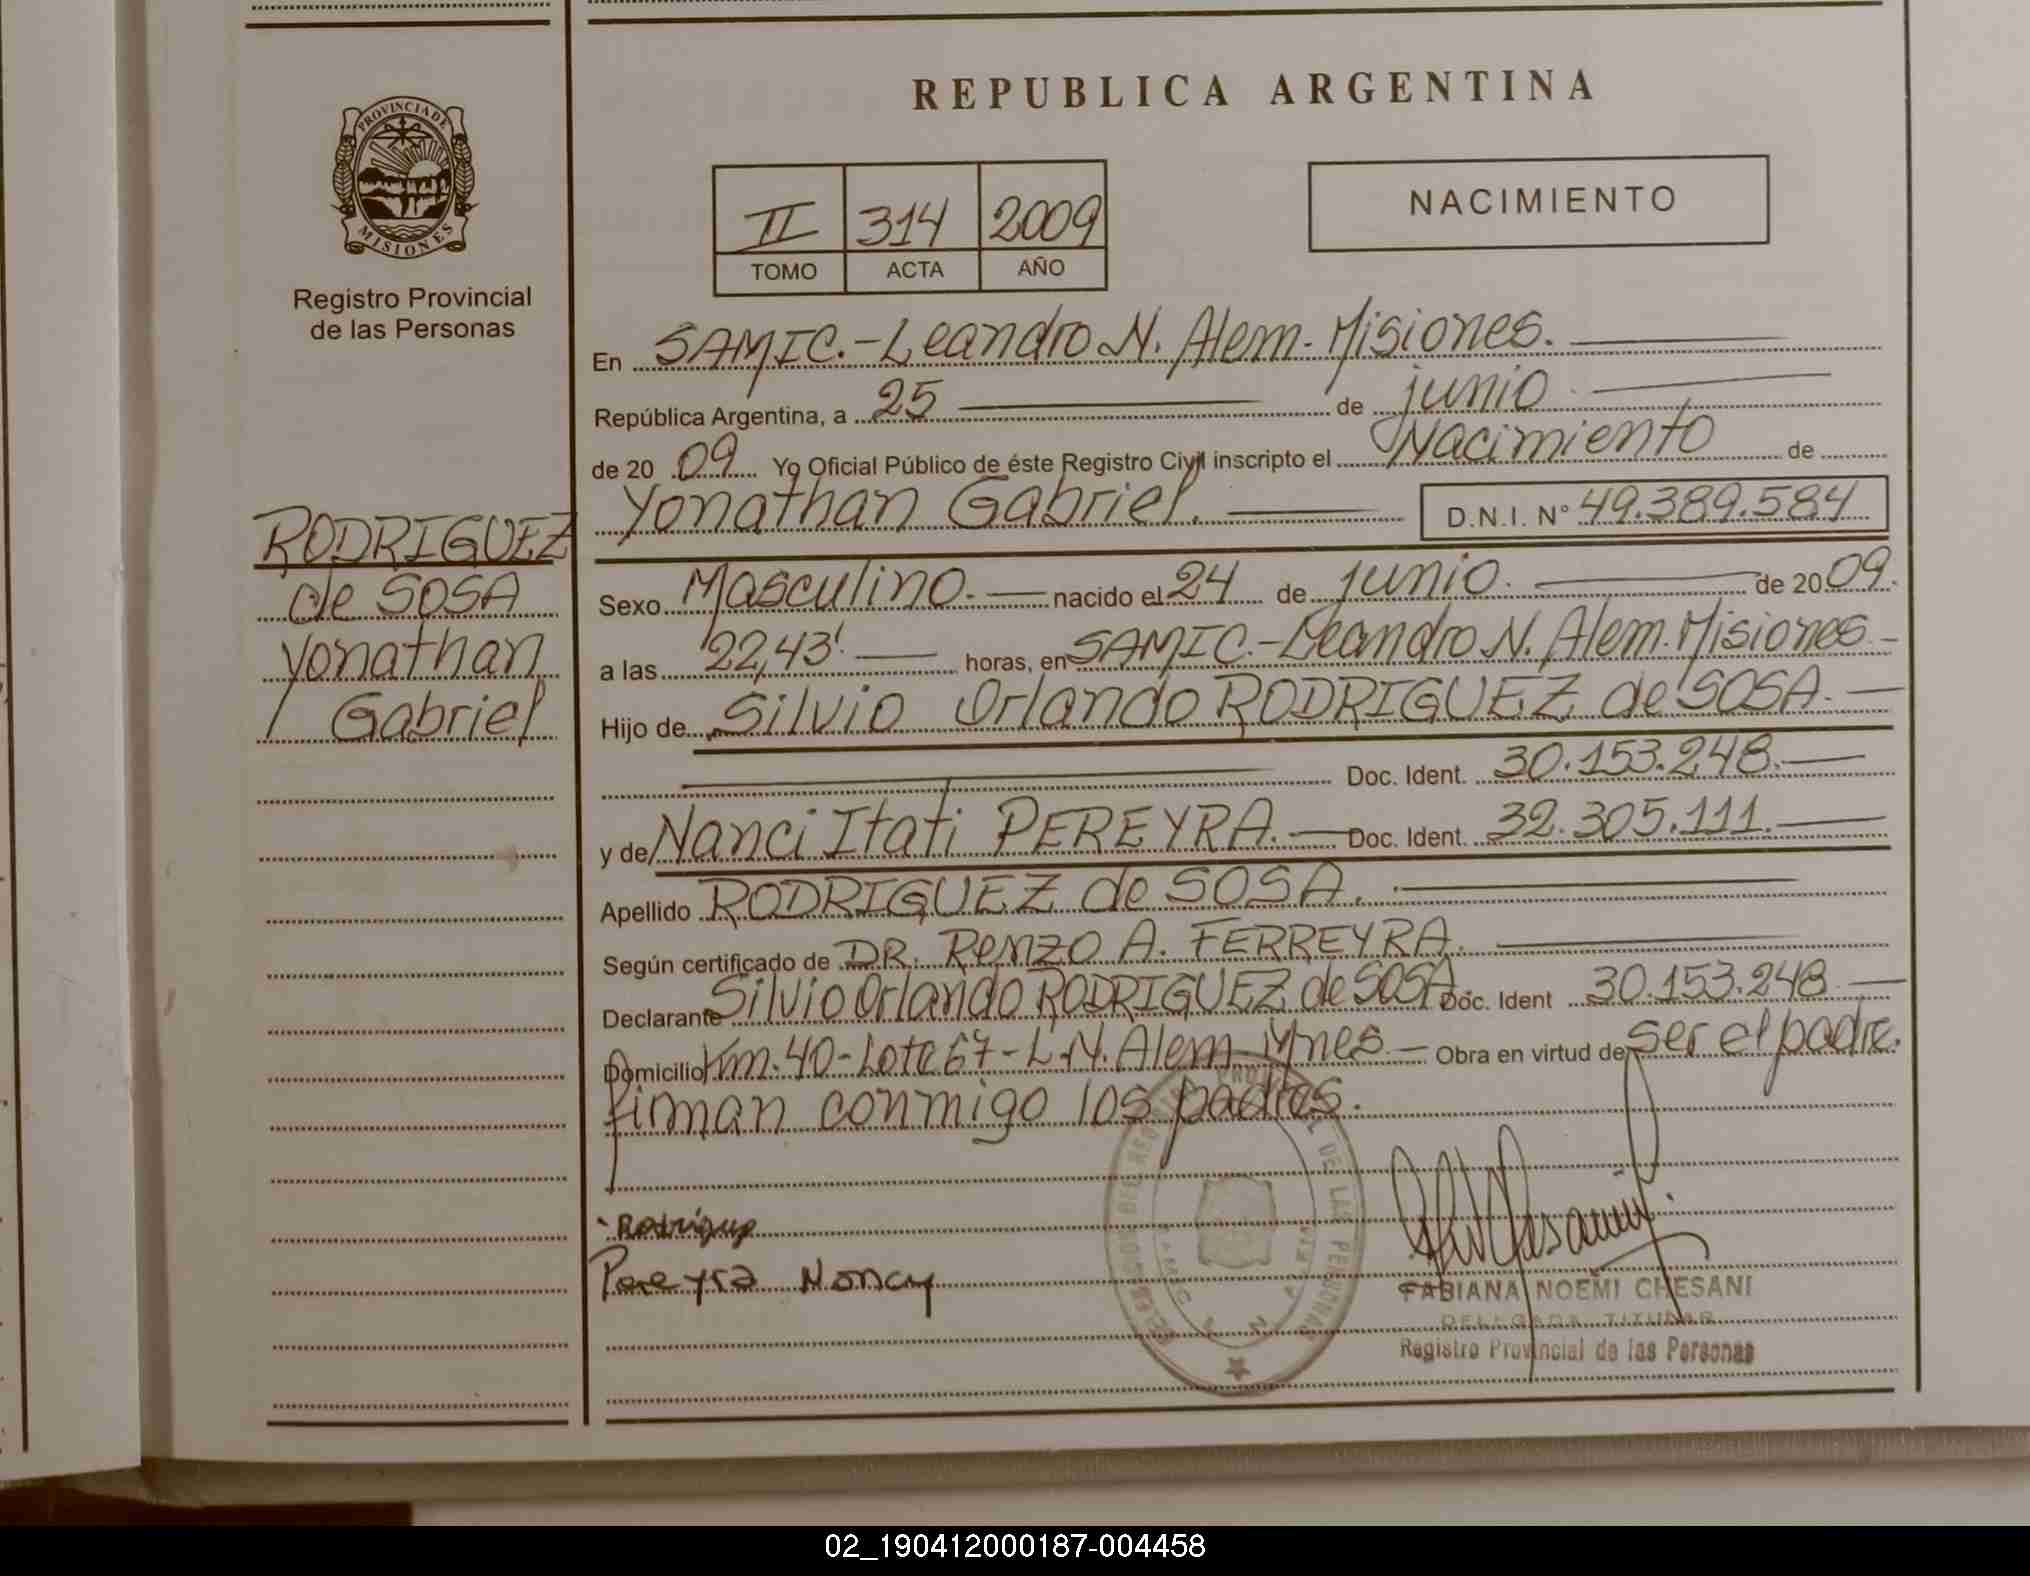 REPUBLICA ARGENTINA
PROVINCIA DE MISIONES
Registro Provincial
de las Personas
II 314 2009
TOMO ACTA AÑO
NACIMIENTO
En SAMIC.-Leandro N. Alem-Misiones.
República Argentina, a 25 de junio
de 2009 Yo Oficial Público de éste Registro Civil inscripto el Nacimiento de
Yonathan Gabriel. D.N.I. Nº 49.389.584
RODRIGUEZ
de SOSA
Yonathan
Gabriel
Sexo Masculino. nacido el 24 de junio. de 2009.
a las 22,43' horas, en SAMIC.-Leandro N. Alem.Misiones-
Hijo de Silvio Orlando RODRIGUEZ de SOSA.
Doc. Ident. 30.153.248.
y de Nanci Itati PEREYRA. Doc. Ident. 32.305.111.
Apellido RODRIGUEZ de SOSA.
Según certificado de DR. Renzo A. FERREYRA.
Declarante Silvio Orlando RODRIGUEZ de SOSA. Doc. Ident 30.153.248.
Domicilio Km.40-Lote 67-L.N.Alem Mnes. Obra en virtud de ser el padre.
firman conmigo los padres.
Pereyra Nancy
FABIANA NOEMI CHESANI
DELEGADA TITULAR
Registro Provincial de las Personas
02_190412000187-004458